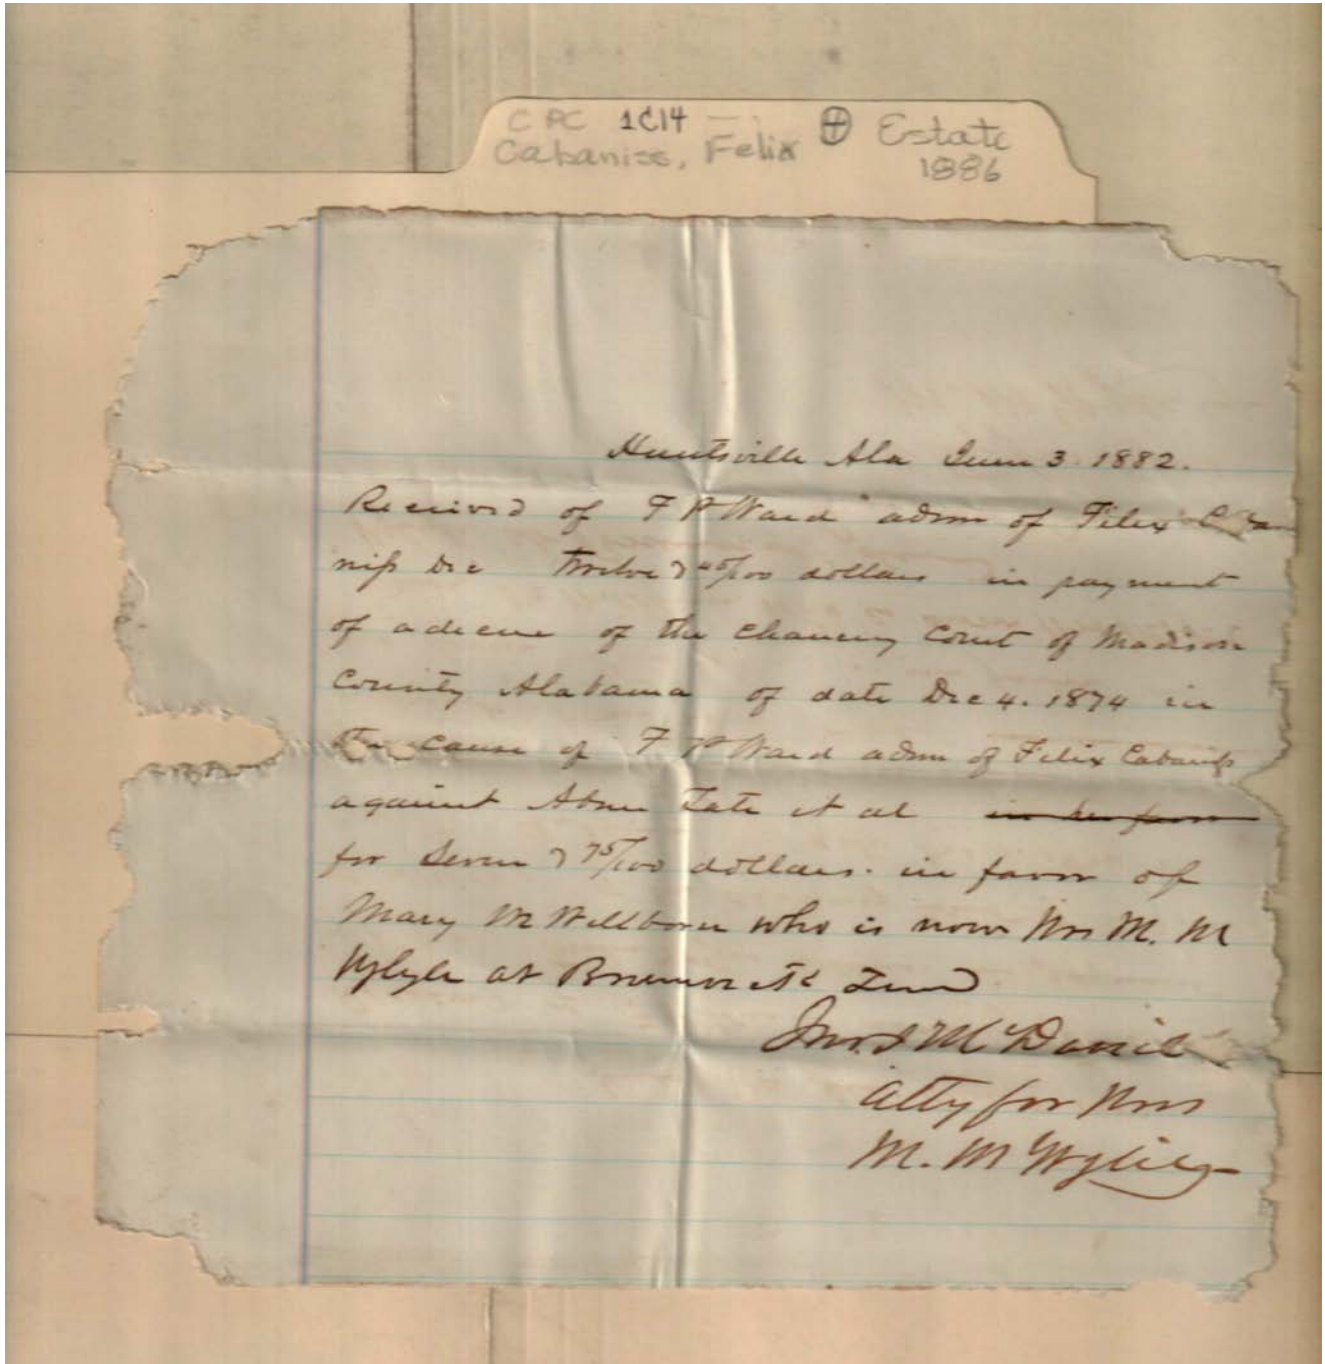 C PC 1C14 Estate
Cabaniss, Felix 1886
Huntsville Ala June 3 1882.
Received of F P Ward admr of Felix Caba
niss Dec Twelve & 45/100 dollars in payment
of a decree of the Chancery Court of Madison
County Alabama of date Dec 4. 1874 in
The cause of F. P Ward admr of Felix Cabaniss
against Abner Tate et al in her favor
for Seven & 75/100 dollars. in favor of
Mary M Wellborn who is now Mrs M. M
Wylye at
McDavid
Atty for Mrs
M. M Wylie